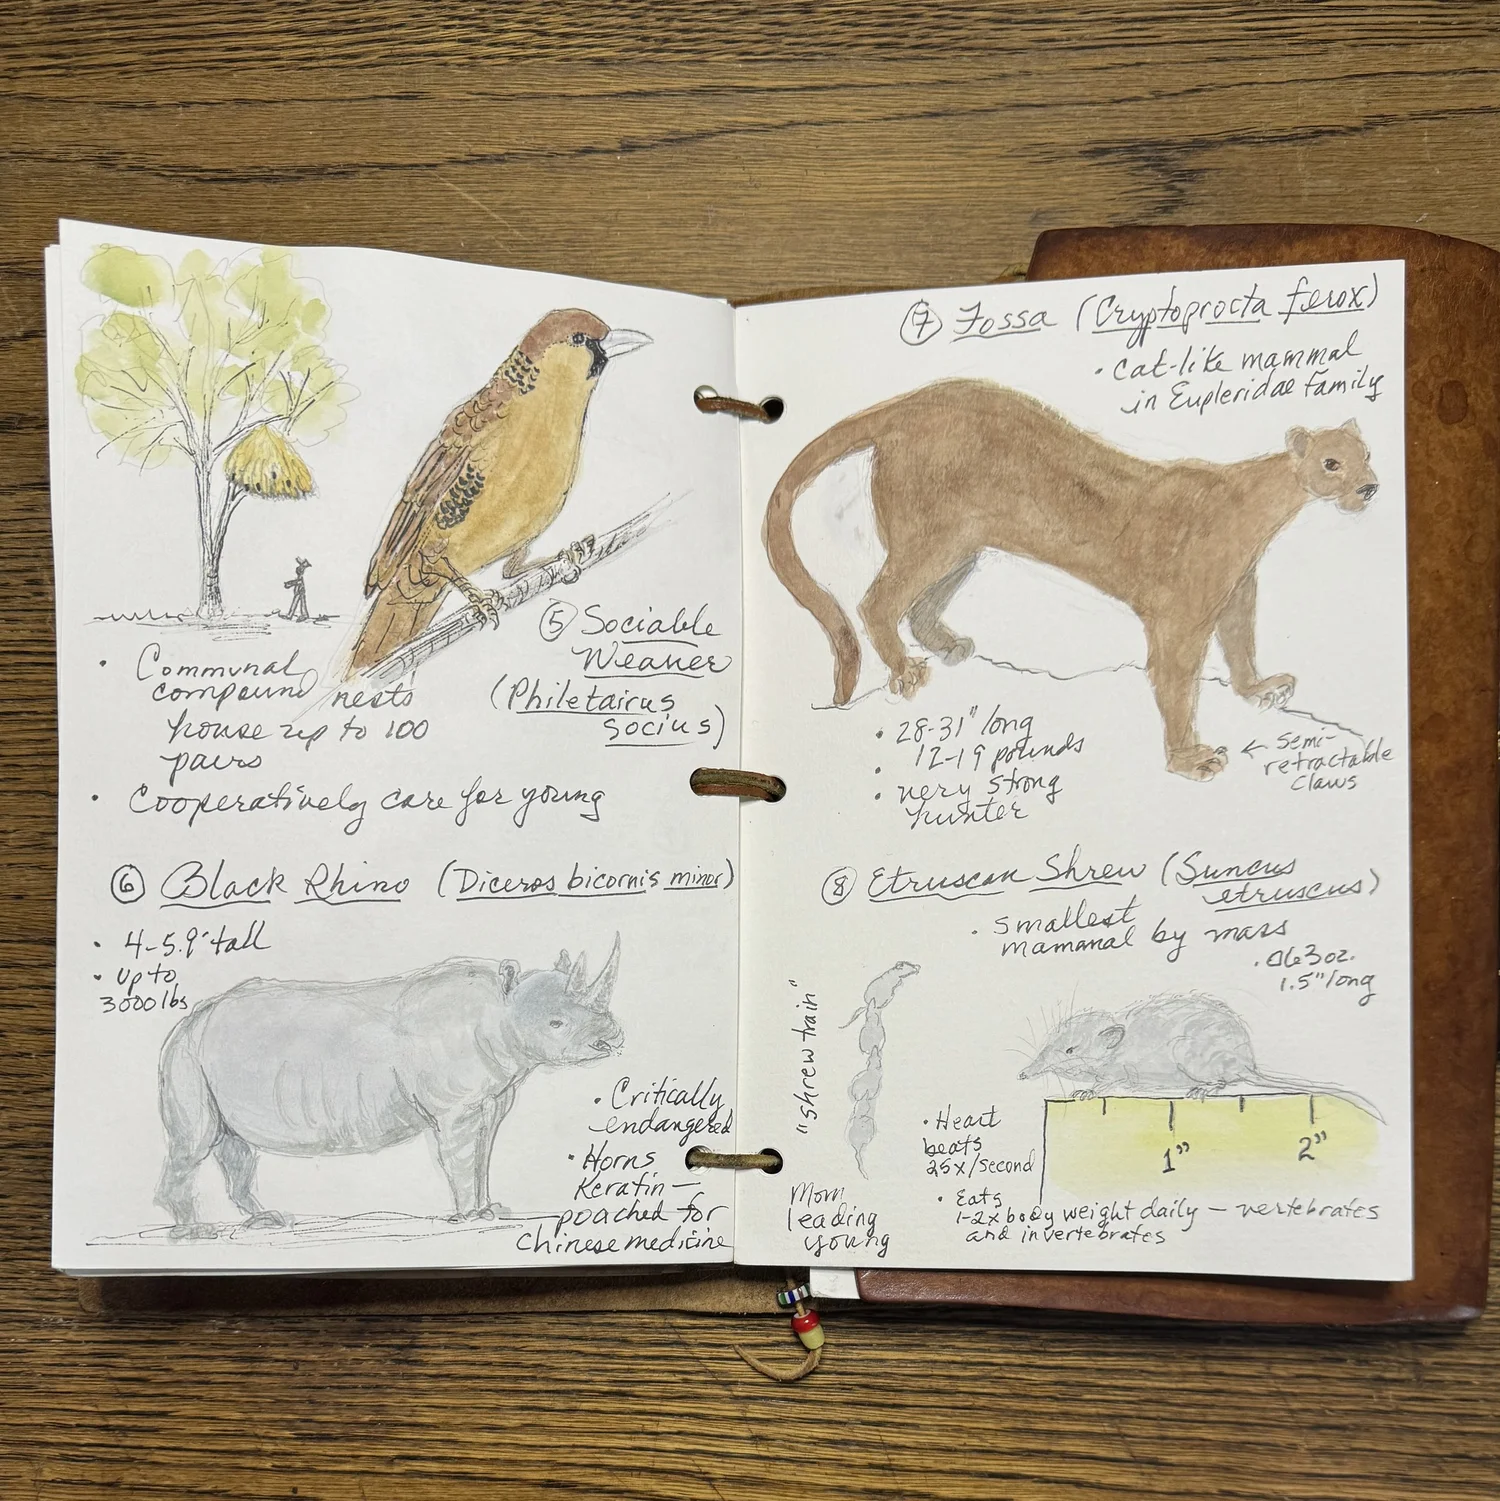 ⑤ Sociable
Weaver
(Philetairus
socius)
• Communal
compound nests
house up to 100
pairs
• Cooperatively care for young
⑥ Black Rhino (Diceros bicornis minor)
• 4-5.9' tall
• Up to
3000 lbs
• Critically
endangered
• Horns
Keratin —
poached for
Chinese medicine
⑦ Fossa (Cryptoprocta ferox)
• cat-like mammal
in Eupleridae family
• 28-31" long
• 12-19 pounds
• very strong
hunter
← semi-
retractable
claws
⑧ Etruscan Shrew (Suncus
etruscus)
• smallest
mamanal by mass
• .063 oz.
1.5" long
"shrew train"
Mom
leading
young
• Heart
beats
25x/second
1" 2"
• Eats
1-2x body weight daily — vertebrates
and invertebrates